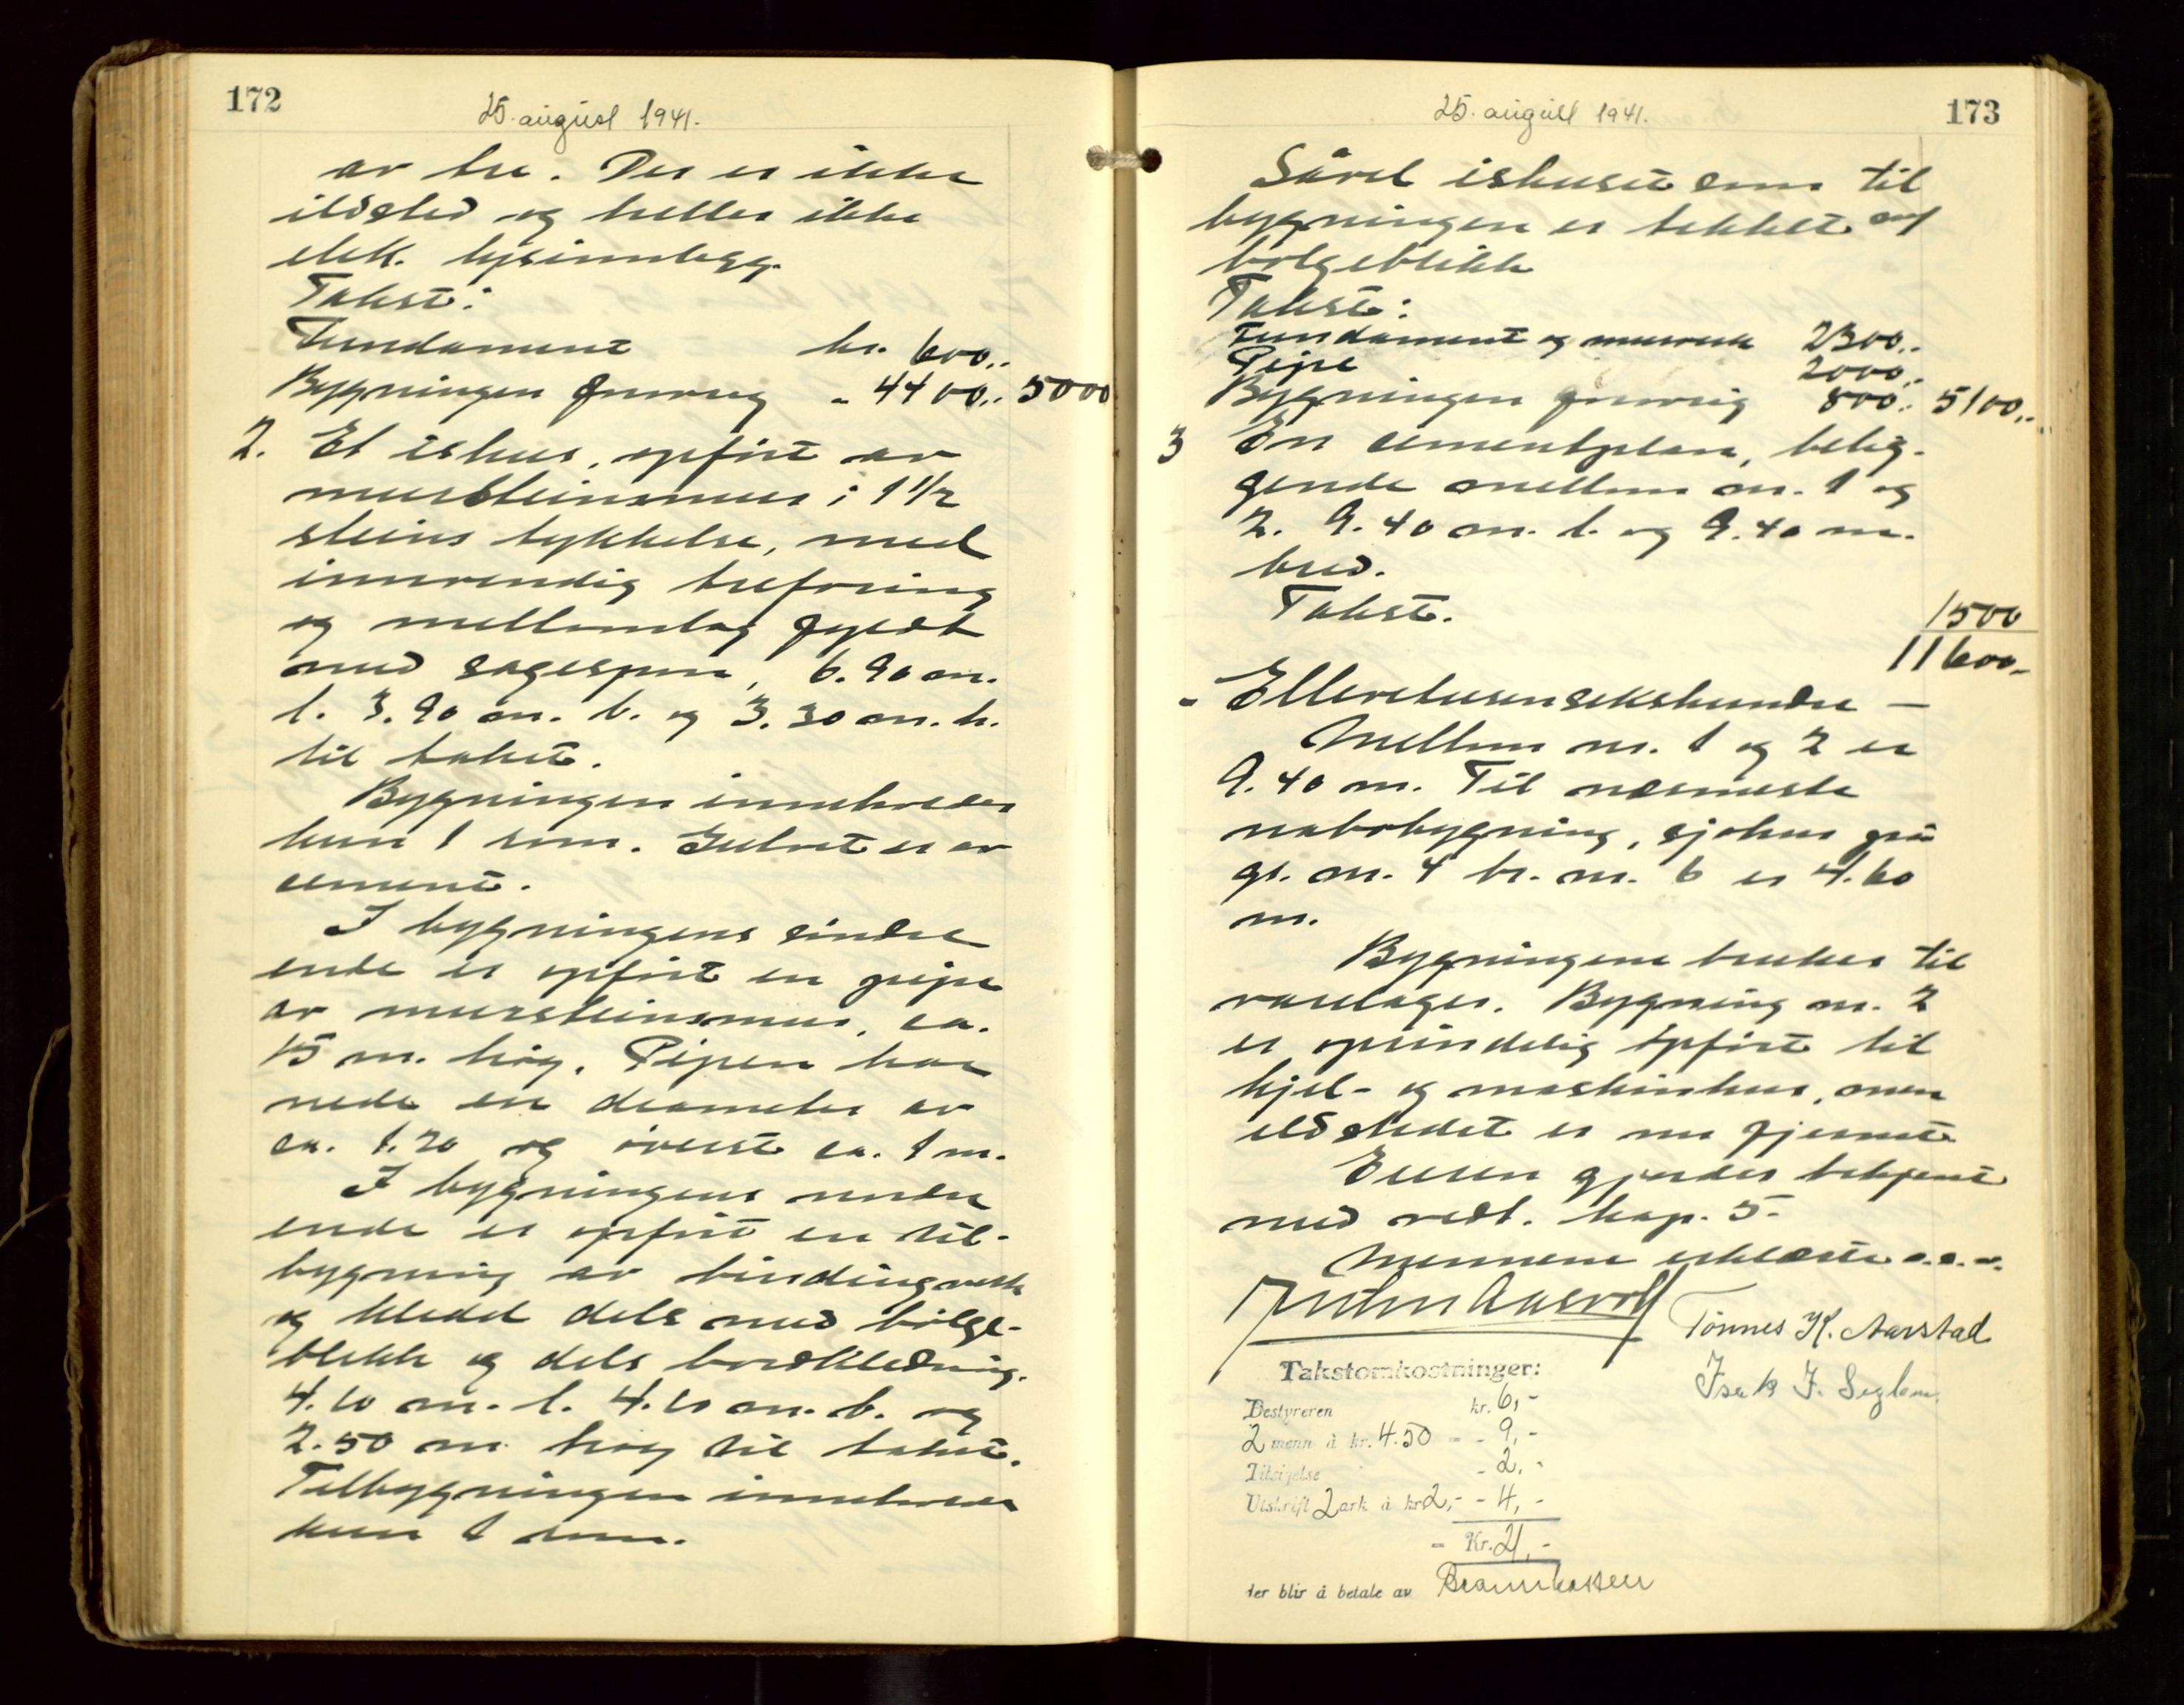 172
25. august 1941.
av tre. Der er ikke
ildsted og heller ikke
elek. lysinnlegg.
Takst:
Fundament kr. 600,-
Bygningen forøvrig - 4400,- 5000
2. Et ishus, opført av
mursteinsmur i 1 1/2
steins tykkelse, med
innvendig trefóring
og mellemlag fyldt
med sagespon, 6.90 m.
l. 3.90 m. b. og 3.30 m. h.
til taket.
Bygningen inneholder
kun 1 rom. Gulvet er av
cement.
I bygningens søndre
ende er opført en pipe
av mursteinsmur, ca.
15 m. høg. Pipen har
nede en diameter av
ca. 1.20 og øverst ca. 1 m.
I bygningens nordre
ende er opført en til-
bygning av bindingverk
og kledd dels med bølge-
blikk og dels bordkledning.
4.10 m. l. 4.10 m. b. og
2.50 m høg til taket.
Tilbygningen inneholder
kun 1 rom.
173
25. august 1941.
Såvel ishuset som til
bygningen er tekket av
bølgeblikk
Takst:
Fundament og murverk 2300,-
Pipe 2000,-
Bygningen forøvrig 800,- 5100,-
3 En cementplan, belig-
gende mellem nr. 1 og
2. 9.40 m. l. og 9.40 m.
bred.
Takst. 1500
11600,-
- Ellevetusensekshundre -
Mellem nr. 1 og 2 er
9.40 m. Til nærmeste
nabobygning, sjøhus på
gr. nr. 4 br. nr. 6 er 4.60
m.
Bygningene brukes til
varelager. Bygning nr. 2
er oprindelig opført til
kjel- og maskinhus, men
ildstedet er nu fjernet.
Eieren gjordes bekjent
med vedt. kap. 5.
Mennene erklærte o.s.v.
Tønnes K. Aarstad
Takstomkostninger:
Isak J.
Bestyreren kr. 6,-
2 menn à kr. 4.50 = - 9,-
Tilsigelse - 2,-
Utskrift 2 ark à kr 2,- - 4,-
= Kr. 21,-
der blir å betale av Brannkassen